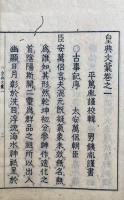 皇典文彙卷之一
平篤胤謹校輯 男銕胤謹書
○古事記序 太安萬侶朝臣
臣安萬侶言夫混元既凝氣象未效無名無
爲誰知其形然乾坤初分參神作造化之
首陰陽斯開二靈爲群品之祖所以出入
幽顯日月彰於洗目浮沈海水神祇呈於